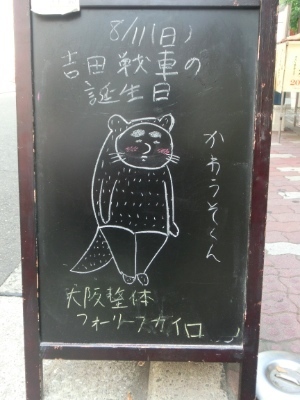 8/11(日)
吉田戦車の
誕生日
かわうそくん
大阪整体
フォーリーブカイロ